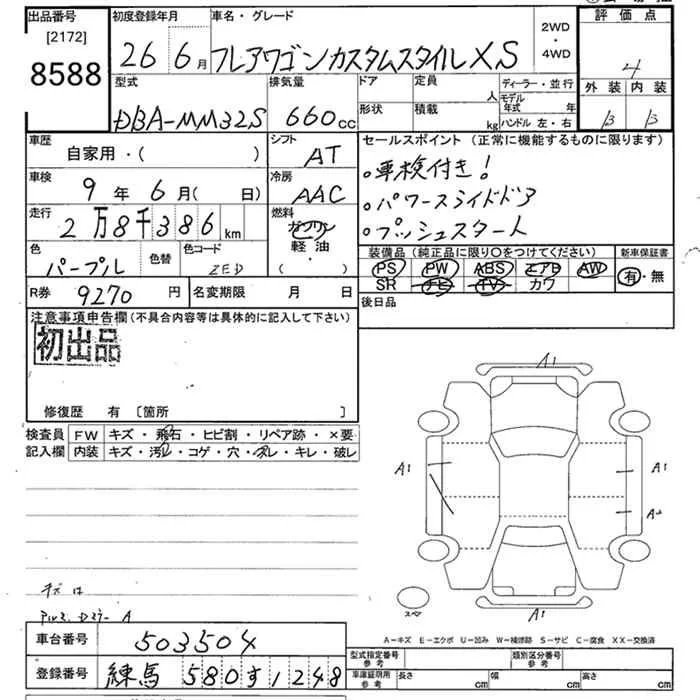 出品番号
[2172]
8588
初度登録年月
26 6月
車名・グレード
フレアワゴンカスタムスタイルXS
2WD
・
4WD
評価点
4
外装 内装
B B
型式
DBA-MM32S
排気量
660cc
ドア
形状
定員 人
積載 kg
ディーラー・並行
モデル年式 年
ハンドル 左・右
車歴
自家用・( )
シフト
AT
車検
9年6月( 日)
冷房
AAC
走行
2万8千386km
燃料
ガソリン
軽・油
( )
色
パープル
色替
色コード
ZED
R券 9270円
名変期限 月 日
セールスポイント(正常に機能するものに限ります)
。車検付き!
。パワースライドドア
。プッシュスタート
装備品(純正品に限り〇をつけてください)
PS PW ABS エアB AW
SR ナビ TV カワ
新車保証書
有・無
後日品
注意事項申告欄(不具合内容等は具体的に記入して下さい)
初出品
修復歴 有 [箇所 ]
検査員
記入欄
FW キズ・飛石・ヒビ割・リペア跡・×要
内装 キズ・汚れ・コゲ・穴・スレ・キレ・破レ
A1
A1
A1
A2
A1
スペア
キズ は
A
A-キズ E-エクボ U-凹み W-補修跡 S-サビ C-腐食 XX-交換済
車台番号 503504
登録番号 練馬 580す1248
型式指定番号
参考
類別区分番号
参考
車庫証明用
参考
長さ cm
幅 cm
高さ cm